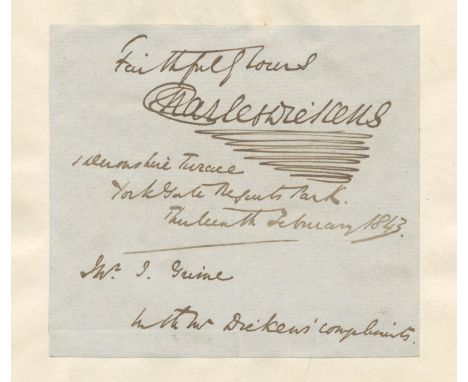 Faithfully Yours
Charles Dickens
1 Devonshire Terrace
York Gate Regents Park.
Thirteenth February 1843.
J. Grime
With Mr Dickens' compliments.